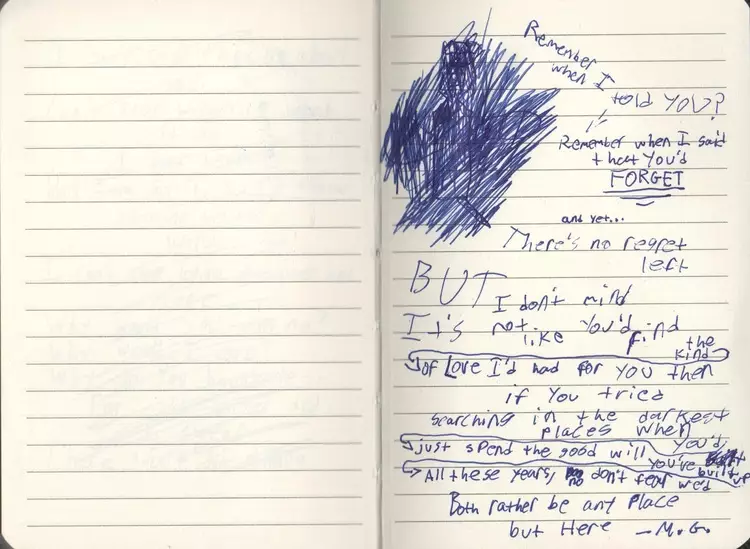 Remember
when I
told YOU?
Remember when I said
that You'd
FORGET
and yet...
There's no regret
left
BUT
I don't mind
It's not like You'd find
the
kind
of Love I'd had for you then
if You tried
searching in the darkest
places when
You'd
just spend the good will
You've built up
All these years, no don't fear we'd
Both rather be any Place
but Here —M.G.